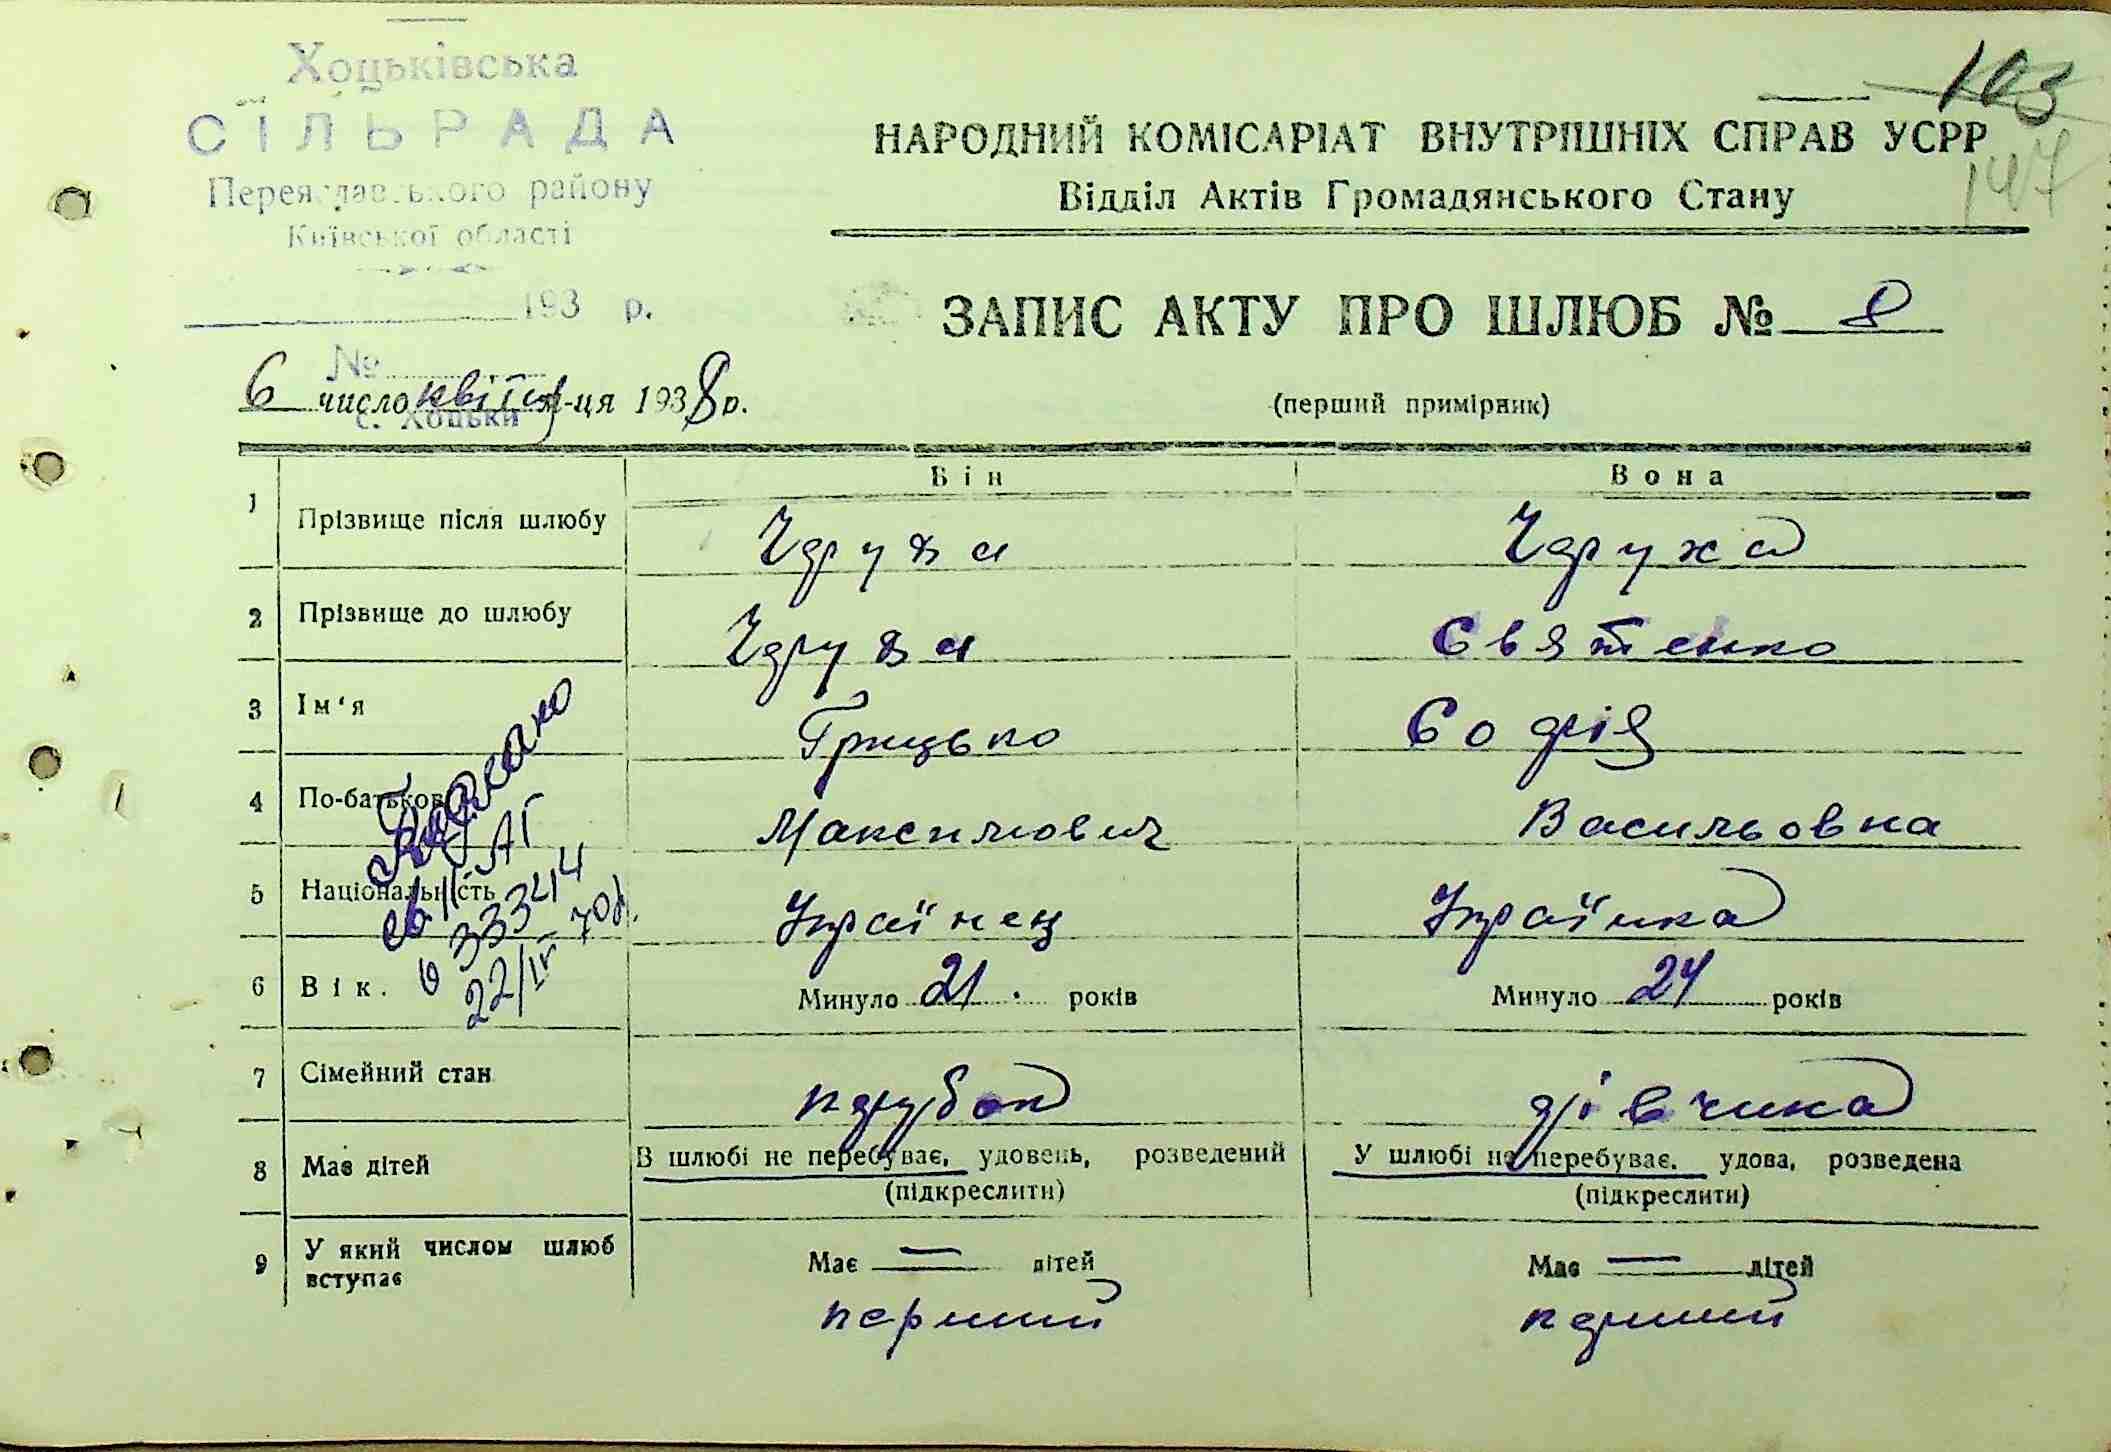 Хоцьківська
СІЛЬРАДА
Переяславського району
Київської області
193 р.
№
с. Хоцьки
103
147
НАРОДНИЙ КОМІСАРІАТ ВНУТРІШНІХ СПРАВ УСРР
Відділ Актів Громадянського Стану
ЗАПИС АКТУ ПРО ШЛЮБ № 8
6 число квітня м-ця 1938 р.
(перший примірник)
Він Вона
1 Прізвище після шлюбу
2 Прізвище до шлюбу Святенко
3 Ім'я Грицько Софія
4 По-батькові Максимович Васильовна
5 Національність Українец Українка
6 Вік. Минуло 21 років Минуло 24 років
7 Сімейний стан парубок дівчина
В шлюбі не перебуває, удовень, розведений У шлюбі не перебуває, удова, розведена
(підкреслити) (підкреслити)
8 Має дітей
Має — дітей Має — дітей
9 У який числом шлюб вступає
перший перший
II АГ
333414
22/IV 70р.